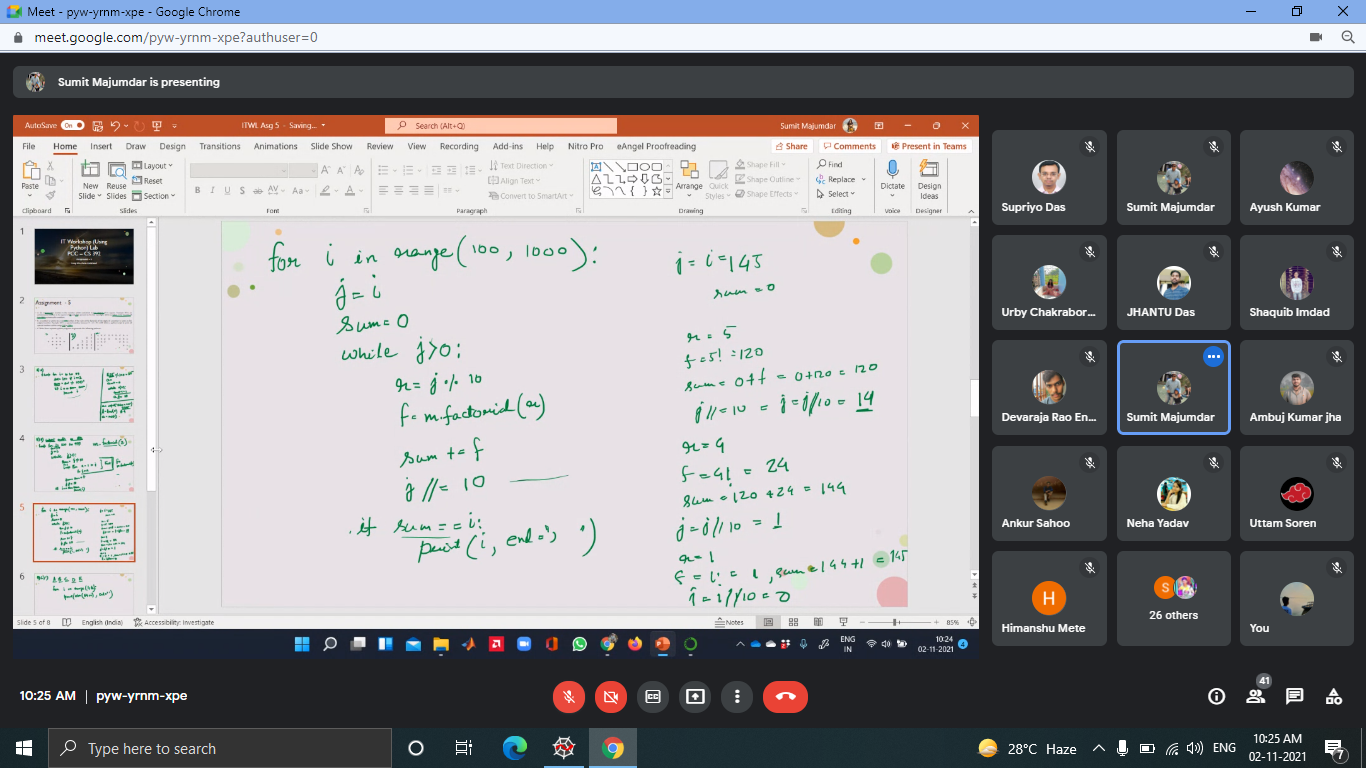 Meet - pyw-yrnm-xpe - Google Chrome
meet.google.com/pyw-yrnm-xpe?authuser=0
Sumit Majumdar is presenting
AutoSave On ITWL Asg 5 - Saving... Search (Alt+Q) Sumit Majumdar
File Home Insert Draw Design Transitions Animations Slide Show Review View Recording Add-ins Help Nitro Pro eAngel Proofreading Share Comments Present in Teams
Paste New Slide Reuse Slides Layout Reset Section
B I U S ab AV Aa A
Text Direction
Align Text
Convert to SmartArt
Arrange Quick Styles
Shape Fill
Shape Outline
Shape Effects
Find
Replace
Select
Dictate Design Ideas
Clipboard Slides Font Paragraph Drawing Editing Voice Designer
1
IT Workshop (Using
Python) Lab
PCC - CS 393
2
Assignment - 5
3
4
5
6
for i in range(100, 1000):
j = i
sum = 0
while j>0:
r = j % 10
f = m.factorial(r)
sum += f
j //= 10
if sum == i:
print(i, end=' ')
j = i = 145
sum = 0
r = 5
f = 5! = 120
sum = 0+f = 0+120 = 120
j //= 10 = j = j//10 = 14
r = 4
f = 4! = 24
sum = 120 + 24 = 144
j = j//10 = 1
r = 1
f = 1! = 1, sum = 144+1 = 145
j = j//10 = 0
Slide 5 of 8 English (India) Accessibility: Investigate Notes 85%
ENG
IN
10:24
02-11-2021
4
Supriyo Das
Sumit Majumdar
Ayush Kumar
Urby Chakrabor...
JHANTU Das
Shaquib Imdad
Devaraja Rao En...
Sumit Majumdar
Ambuj Kumar jha
Ankur Sahoo
Neha Yadav
Uttam Soren
H
Himanshu Mete
S
26 others
You
10:25 AM | pyw-yrnm-xpe
41
Type here to search
28°C Haze
ENG
10:25 AM
02-11-2021
7